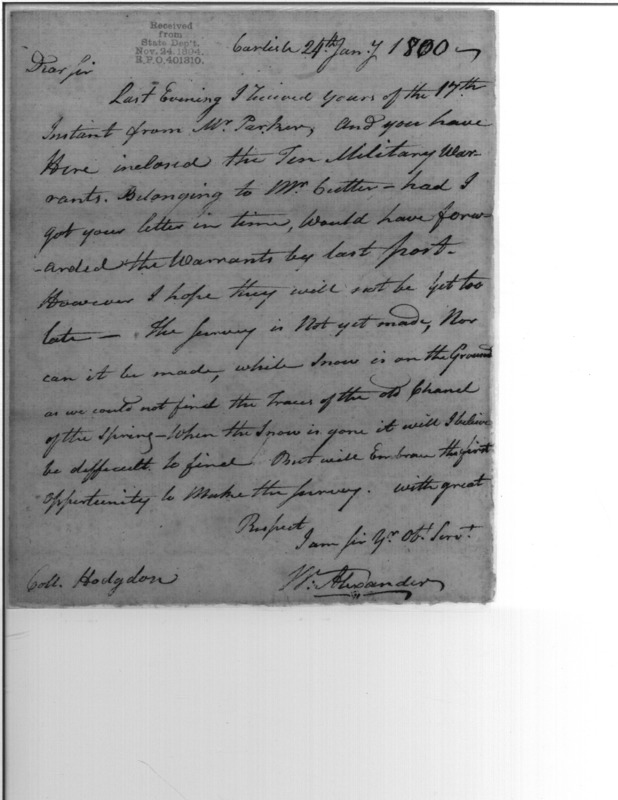 Received
from
State Dep't.
Nov. 24, 1894.
R.P.O. 401310.
Carlisle 24th Jan.y 1800
Dear Sir
Last Evening I Received yours of the 17th
Instant from Mr Parker, And you have
Here inclosed the Ten Military War-
rants. Belonging to Mr Cutter - had I
got your letter in time, Would have forw-
-arded the Warrants by last post-
However I hope they will not be yet too
late - The Survey is Not yet made, Nor
can it be made, while Snow is on the Ground
as we could not find the Traces of the old Chanel
of the Spring - When the Snow is gone it will I believe
be difficult to find But will Embrace the first
opportunity to Make the Survey. with great
Respect
I am Sir Yr. Obt. Servt.
Wm. Alexander
Coll. Hodgdon